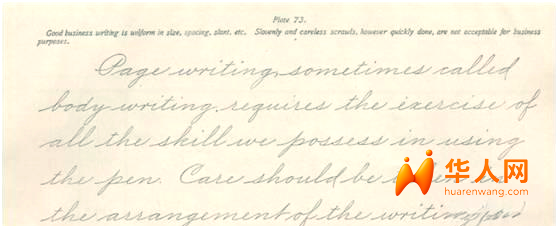 Plate 73.
Good business writing is uniform in size, spacing, slant, etc. Slovenly and careless scrawls, however quickly done, are not acceptable for business
purposes.
Page writing, sometimes called
body writing, requires the exercise of
all the skill we possess in using
the pen. Care should be in
the arrangement of the writing
华人网
huarenwang.com